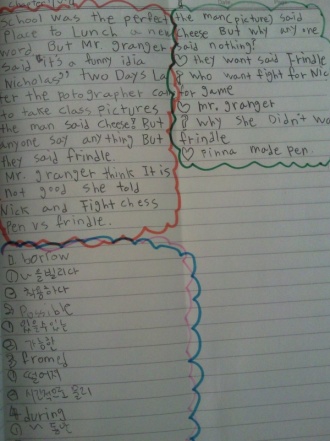 School was the perfect
Place to Lunch a new
word But Mr. granger
Said "it's a funny idia
Nicholas" two Days La
ter the potographer cam
to take class pictures
the man said cheese! But
Anyone Say any thing But
they said frindle.
Mr. granger think It is
not good she told
Nick and Fight chess
Pen vs frindle.
the man(picture) said
Cheese But why any one
said nothing?
♡ they want said Frindle
who want fight for Nic
for game
♡ mr. granger
why she Didn't wa
frindle
♡ pinna made pen.
① borrow
① ~을 빌리다
② 차용하다
② Possible
① 있을 수 있는
② 가능한
3 framed
① 떨어져
4 during
① ~ 동안